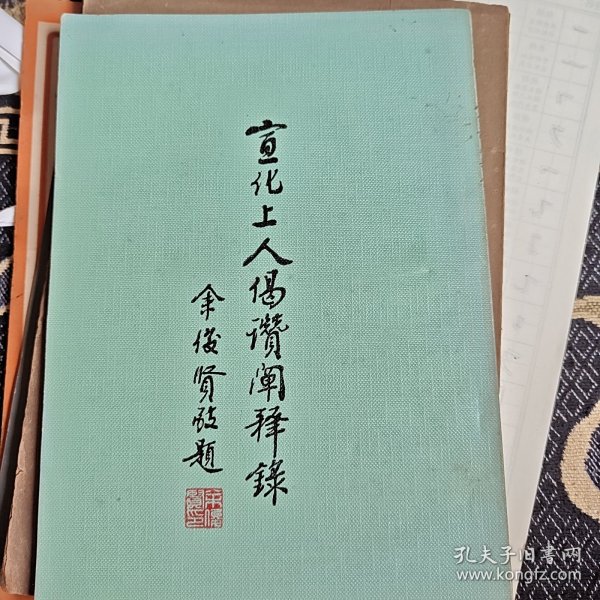 宣化上人偈讚闡釋錄
余俊贤敬题
孔夫子旧书网
www.kongfz.com